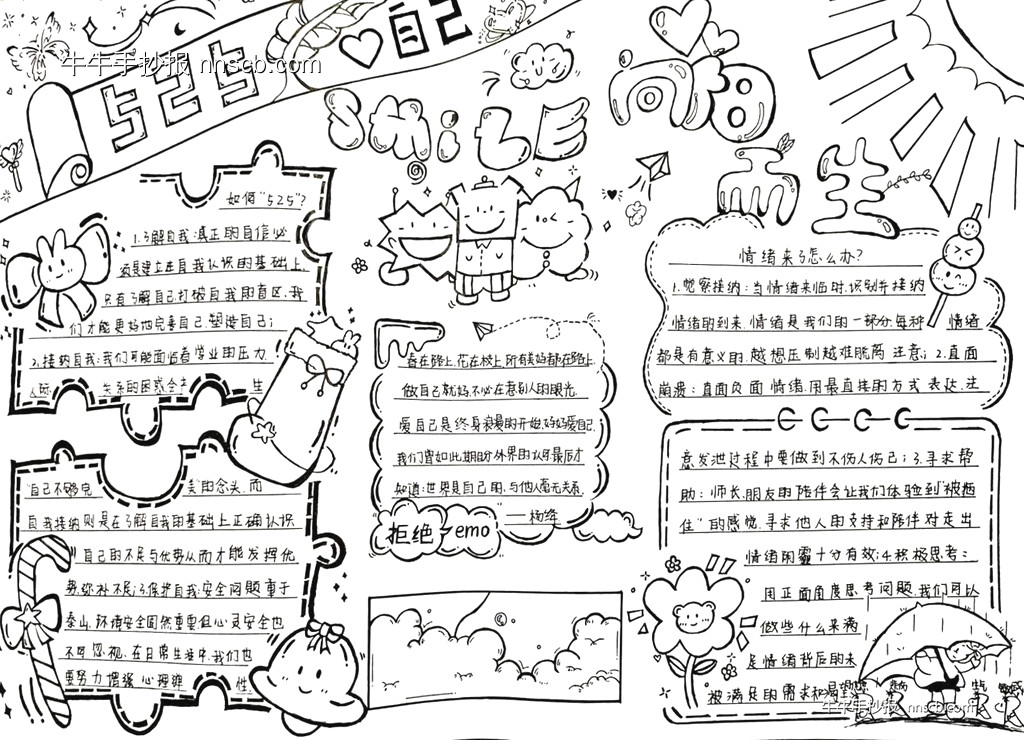 牛牛手抄报 nnscb.com
525
自己
SMiLE
向阳
而生
如何“525”?
1.了解自我:真正的自信必
须是建立在自我认识的基础上,
只有了解自己打破自我的盲区,我
们才能更好地完善自己.塑造自己;
2.接纳自我:我们可能面临着学业的压力
人际 关系的困惑会产 生
“自己不够完 美”的念头.而
自我接纳则是在了解自我的基础上正确认识
自己的不足与优势从而才能发挥优
势.弥补不足;3.保护自我:安全问题重于
泰山.环境安全固然重要但心灵安全也
不可忽视.在日常生活中.我们也
要努力增强心理弹 性
春在路上,花在枝上,所有美好都在路上.
做自己就好.不必在意别人的眼光.
爱自己是终身浪漫的开始.好好爱自己.
我们曾如此期盼外界的认可最后才
知道:世界是自己的.与他人毫无关系.
——杨绛
拒绝 emo
情绪来了怎么办?
1.觉察接纳:当情绪来临时.识别并接纳
情绪的到来.情绪是我们的一部分.每种 情绪
都是有意义的.越想压制越难脱离 注意;2.直面
崩溃:直面负面情绪.用最直接的方式表达.注
意发泄过程中要做到不伤人伤己;3.寻求帮
助:师长.朋友的陪伴会让我们体验到“被抱
住”的感觉.寻求他人的支持和陪伴对走出
情绪阴霾十分有效;4.积极思考:
用正面角度思考问题.我们可以
做些什么来满
足情绪背后的未
被满足的需求和
牛牛手抄报 nnscb.com